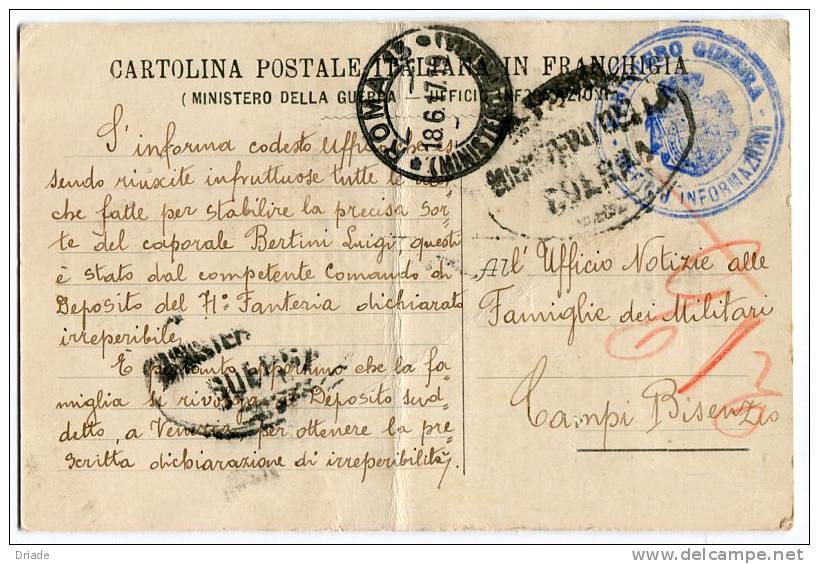 CARTOLINA POSTALE ITALIANA IN FRANCHIGIA
(MINISTERO DELLA GUERRA — UFFICIO INFORMAZIONI)
ROMA 18.6.17
MINISTERO GUERRA
UFFICIO INFORMAZIONI
MINISTERO DELLA
GUERRA
S'informa codesto Ufficio che es=
sendo riuscite infruttuose tutte le
che fatte per stabilire la precisa sor=
te del caporale Bertini Luigi questi
è stato dal competente Comando di
Deposito del 71º Fanteria dichiarato
irreperibile
È pertanto opportuno che la fa=
miglia si rivolga al Deposito sud=
detto, a Venezia, per ottenere la pre=
scritta dichiarazione di irreperibilità
MINISTER
GUERRA
All' Ufficio Notizie alle
Famiglie dei Militari
Campi Bisenzio
Driade
http://www.delcampe.net